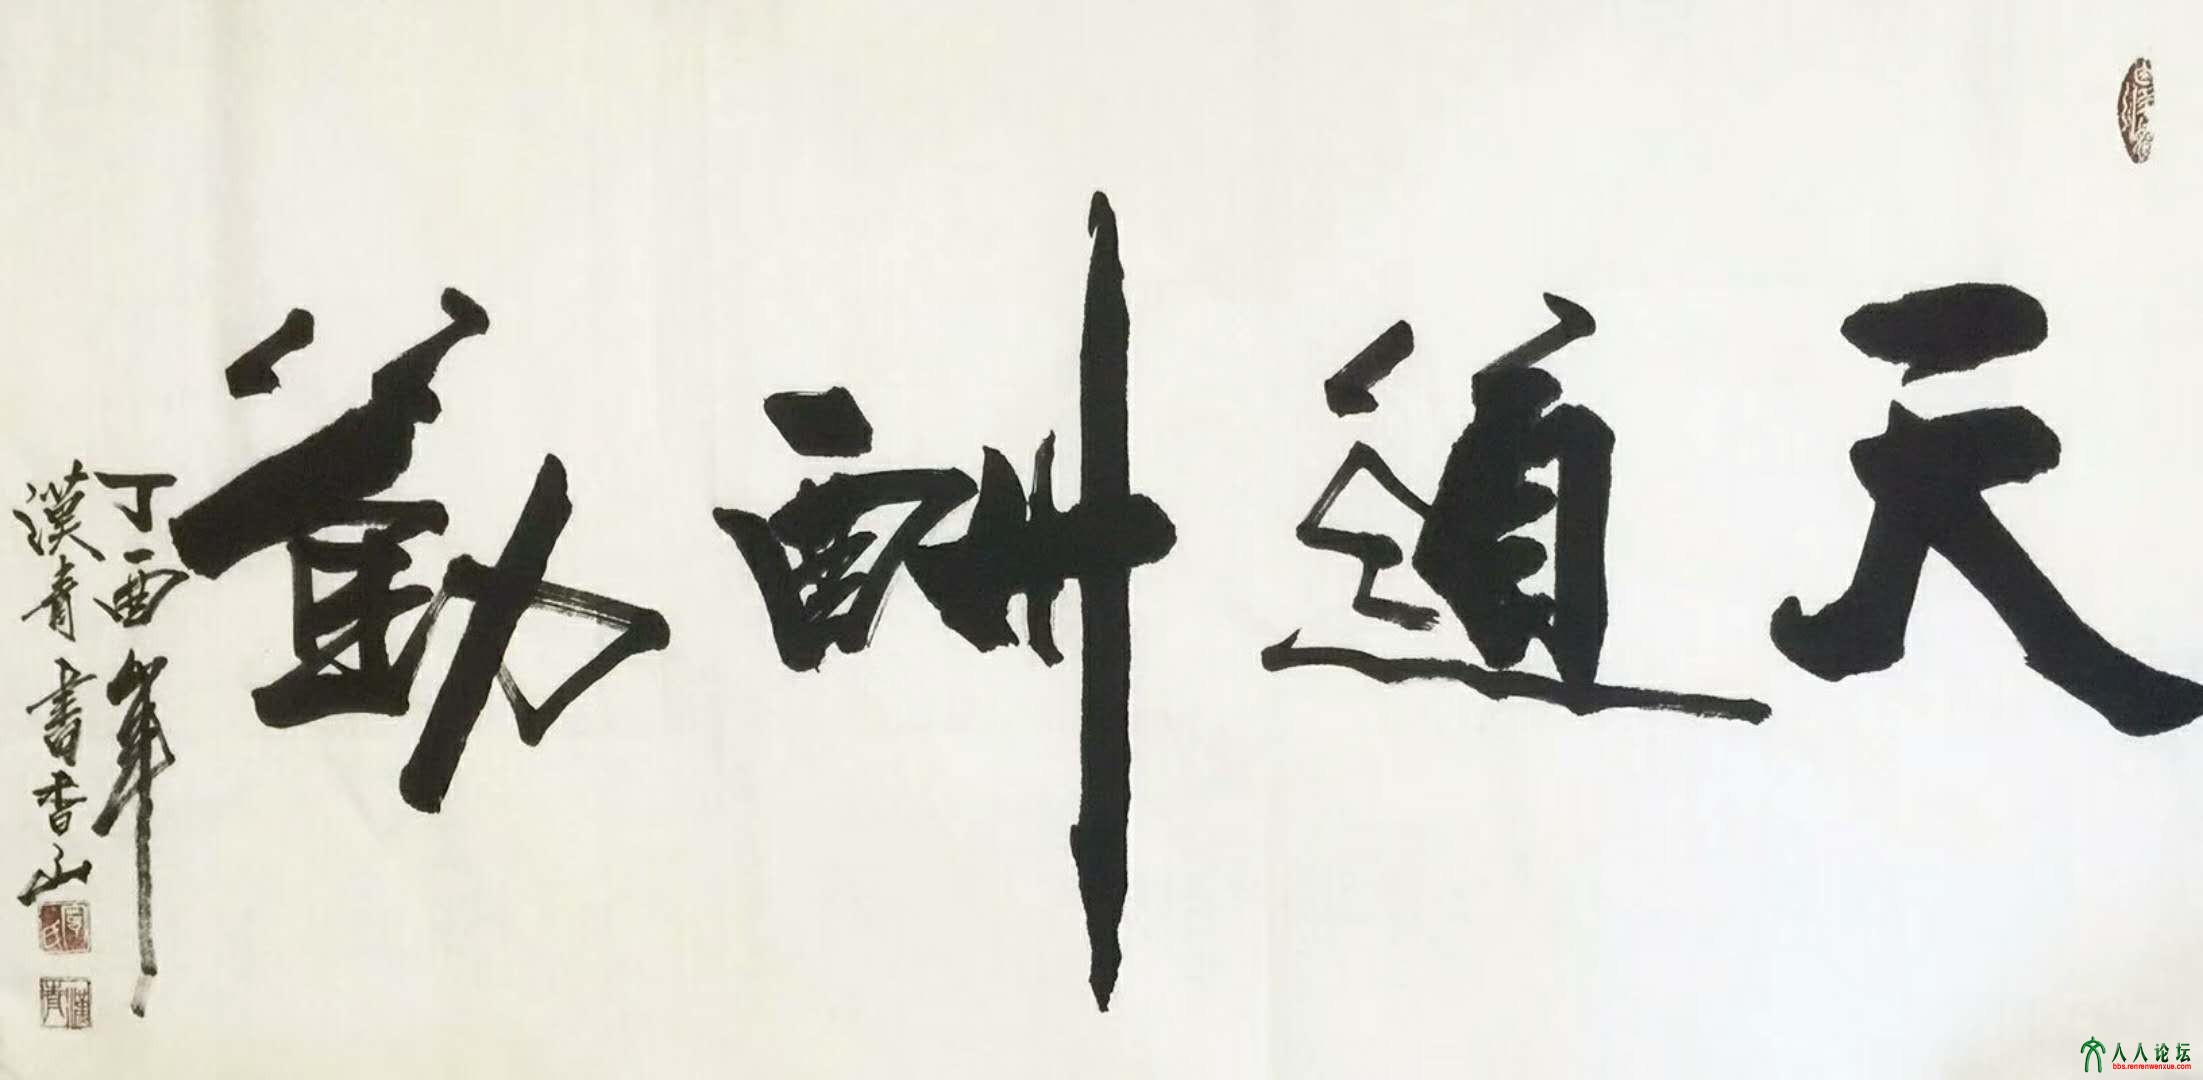 天道酬勤
丁酉年
漢青書香山
人人论坛
bbs.renrenwenxue.com